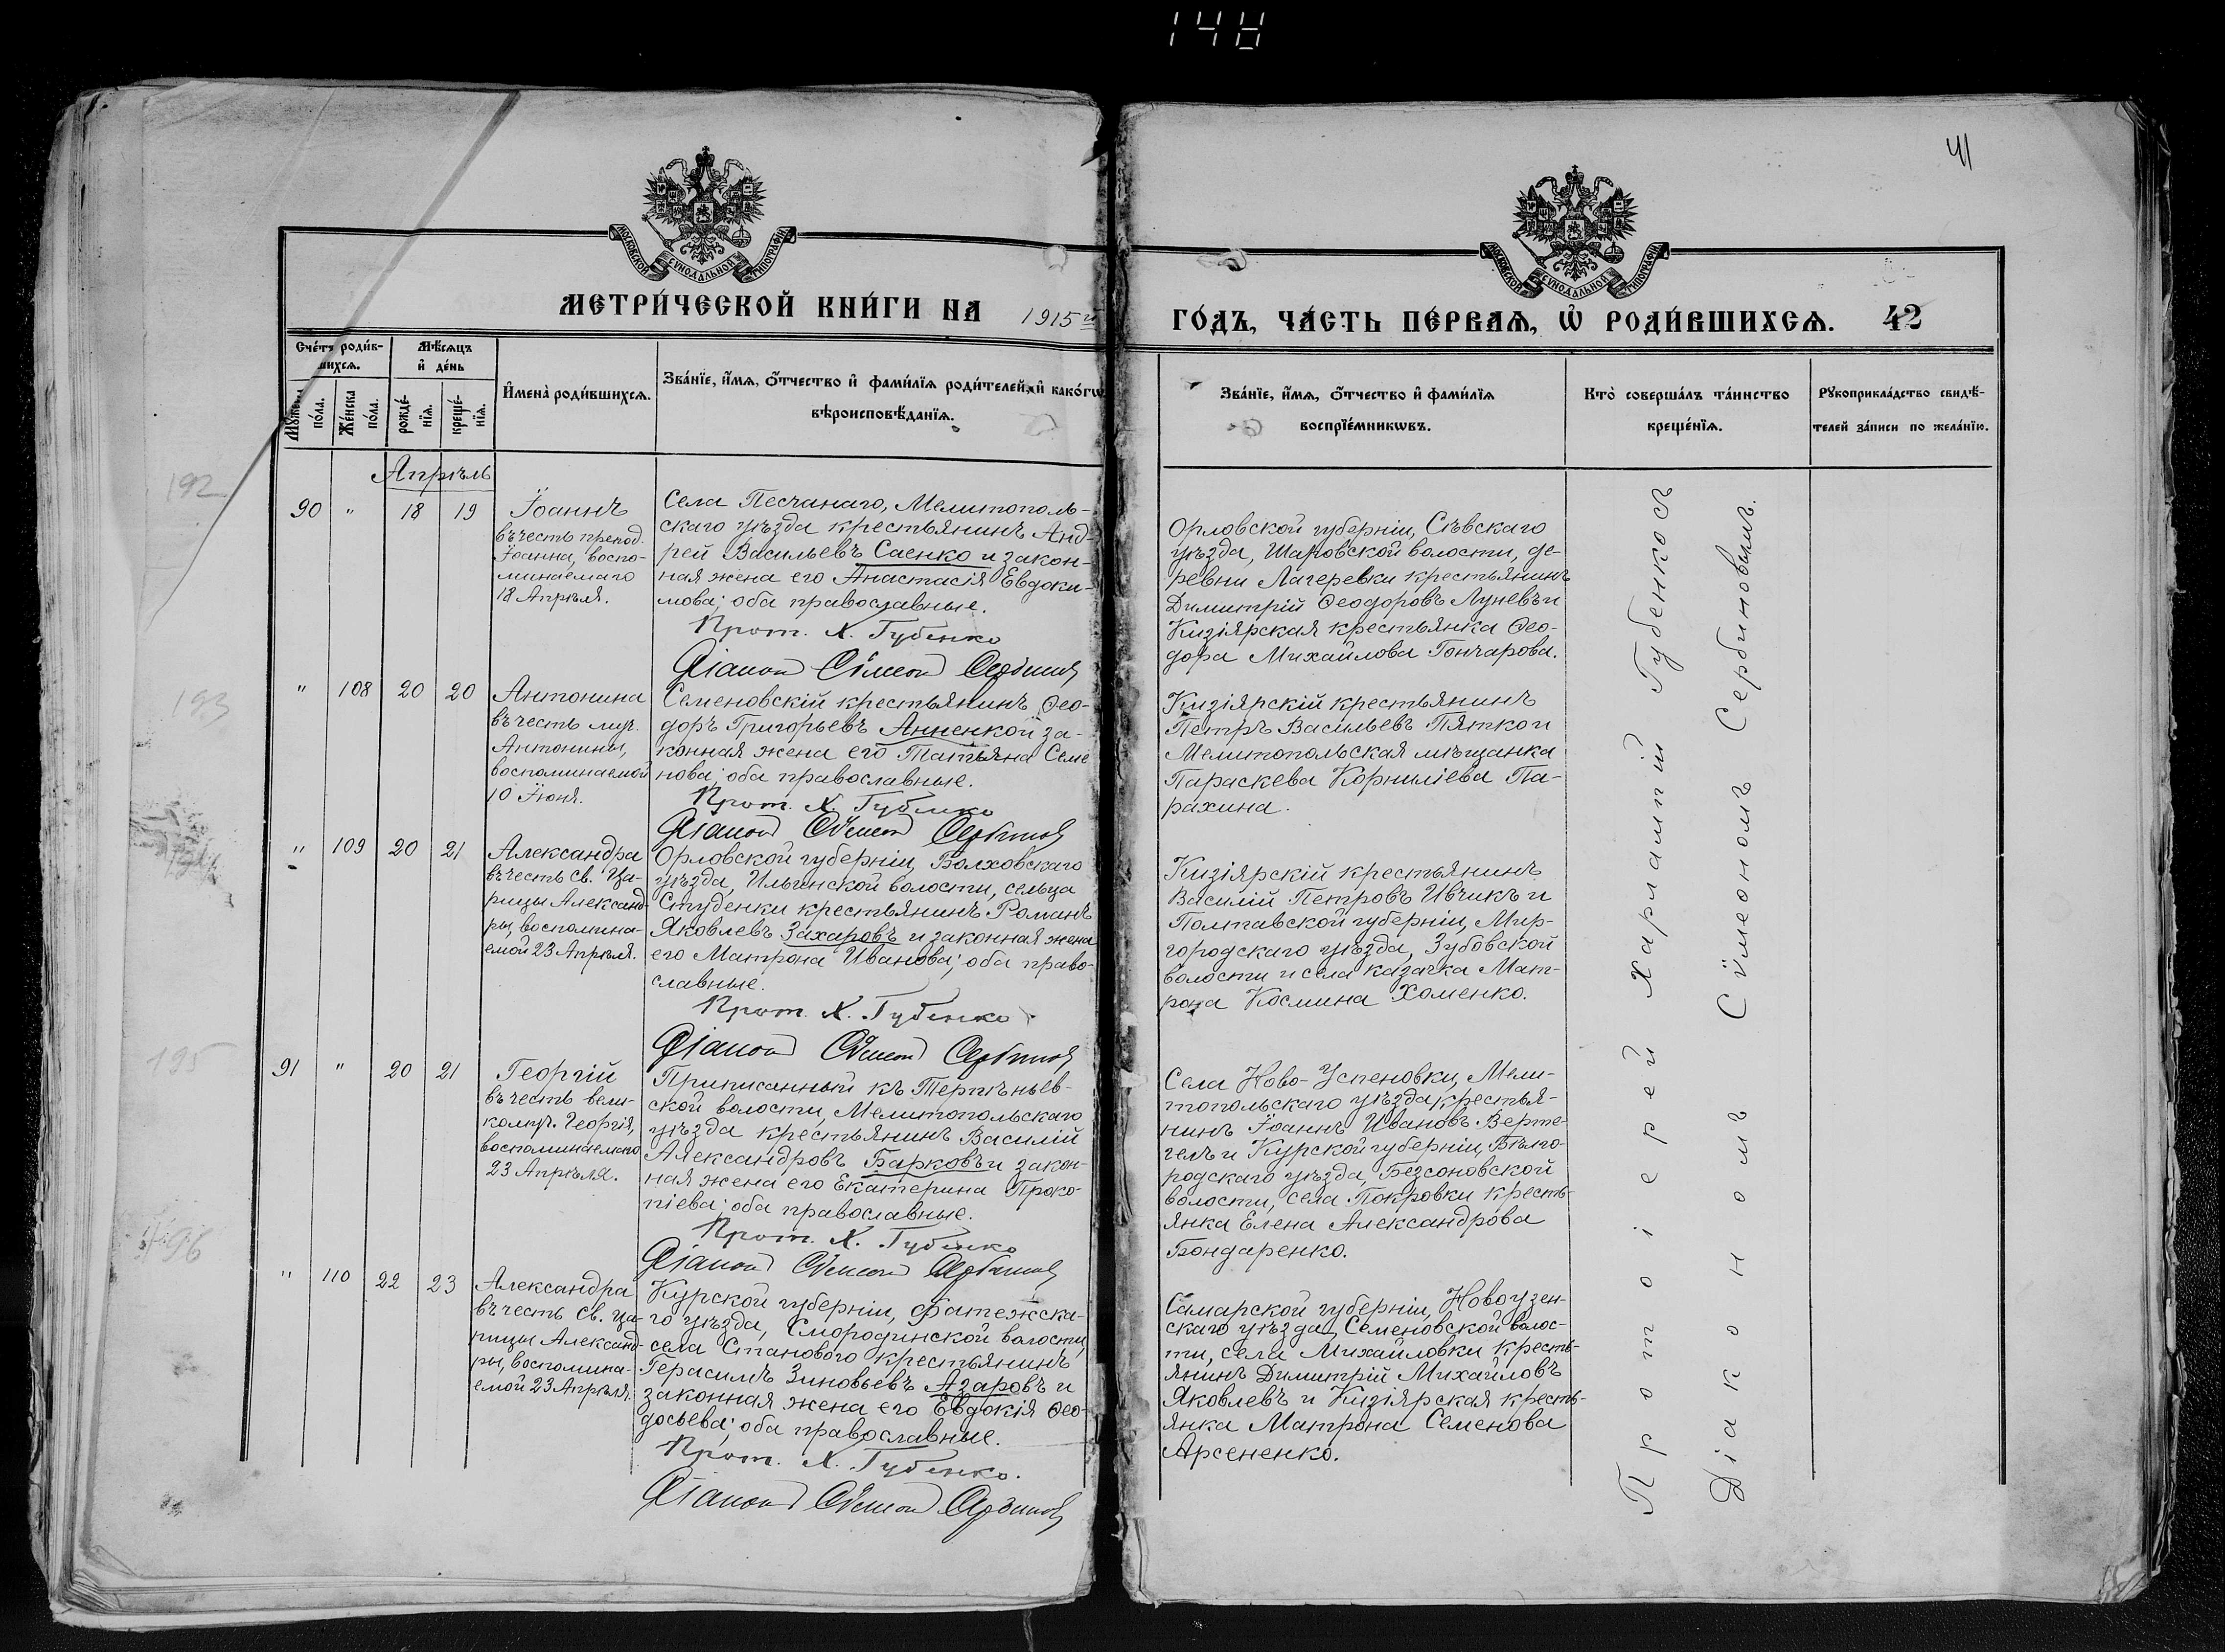 148
41
МОСКОВСКОЙ СУНОДАЛЬНОЙ ТИПОГРАФІИ
МОСКОВСКОЙ СУНОДАЛЬНОЙ ТИПОГРАФІИ
МЕТРИ́ЧЕСКОЙ КНИ́ГИ НА 1915й
ГО́ДЪ, ЧА́СТЬ ПЕ́РВАѦ, Ѽ РОДИ́ВШИХСѦ. 42
Сче́тъ роди́в-
шихсѧ.
Мѣ́сѧцъ
и҆ де́нь
Мꙋ́жеска по́ла.
Же́нска по́ла.
рожде́-
нїѧ.
креще́-
нїѧ.
И҆мена̀ роди́вшихсѧ.
Зва́нїе, и҆́мѧ, ѻ҆́тчество и҆ фами́лїѧ роди́телей, и҆ како́гѡ
вѣроисповѣ́данїѧ.
Зва́нїе, и҆́мѧ, ѻ҆́тчество и҆ фами́лїѧ
воспрїе́мникѡвъ.
Кто̀ соверша́лъ та́инство
креще́нїѧ.
Рꙋкоприкла́дство свидѣ́-
телей за́писи по жела́нїю.
Апрѣль
192
90 " 18 19
Іоаннъ
въ честь препод.
Іоанна, воспо-
минаемаго
18 Апрѣля.
Села Песчанаго, Мелитополь-
скаго уѣзда крестьянинъ Анд-
рей Васильевъ Саенко и закон-
ная жена его Анастасія Евдоки-
мова; оба православные.
Прот. Х. Губенко
Діаконъ Сѵмеонъ Сербиновъ
Орловской губерніи, Сѣвскаго
уѣзда, Шаровской волости, де-
ревни Лагеревки крестьянинъ
Димитрій Ѳеодоровъ Луневъ и
Кизіярская крестьянка Ѳео-
дора Михайлова Гончарова.
193
" 108 20 20
Антонина
въ честь муч.
Антонины,
воспоминаемой
10 Іюня.
Семеновскій крестьянинъ Ѳео-
доръ Григорьевъ Анненко и за-
конная жена его Татьяна Семе
нова; оба православные.
Прот. Х. Губенко
Діаконъ Сѵмеонъ Сербиновъ
Кизіярскій крестьянинъ
Петръ Васильевъ Пятко и
Мелитопольская мѣщанка
Параскева Корниліева Па-
рахина.
194
" 109 20 21
Александра
въ честь св. Ца-
рицы Александ-
ры, воспомина-
емой 23 Апрѣля.
Орловской губерніи, Болховскаго
уѣзда, Ильинской волости, сельца
Студенки крестьянинъ Романъ
Яковлевъ Захаровъ и законная жена
его Матрона Иванова; оба право-
славные.
Прот. Х. Губенко
Діаконъ Сѵмеонъ Сербиновъ
Кизіярскій крестьянинъ
Василій Петровъ Ивчикъ и
Полтавской губерніи, Мир-
городскаго уѣзда, Зубовской
волости и села казачка Мат-
рона Космина Хоменко.
195
91 " 20 21
Георгій
въ честь вели-
комуч. Георгія,
воспоминаемаго
23 Апрѣля.
Приписанный къ Терпѣньев-
ской волости, Мелитопольскаго
уѣзда крестьянинъ Василій
Александровъ Барковъ и закон-
ная жена его Екатерина Проко-
піева; оба православные.
Прот. Х. Губенко
Діаконъ Сѵмеонъ Сербиновъ
Села Ново-Успеновки, Мели-
топольскаго уѣзда, крестья-
нинъ Іоаннъ Ивановъ Верте-
гелъ и Курской губерніи, Бѣлго-
родскаго уѣзда, Безсоновской
волости, села Покровки кресть-
янка Елена Александрова
Бондаренко.
196
" 110 22 23
Александра
въ честь св. ца-
рицы Александ-
ры, воспомина-
емой 23 Апрѣля.
Курской губерніи, Фатежска-
го уѣзда, Смородинской волости,
села Становаго крестьянинъ
Герасимъ Зиновьевъ Азаровъ и
законная жена его Евдокія Ѳео-
досьева; оба православные.
Прот. Х. Губенко.
Діаконъ Сѵмеонъ Сербиновъ
Самарской губерніи, Новоузен-
скаго уѣзда, Семеновской волос-
ти, села Михайловки кресть-
янинъ Димитрій Михайловъ
Яковлевъ и Кизіярская кресть-
янка Матрона Семенова
Арсененко.
Протоіерей Харлампій Губенко съ
Діакономъ Сѵмеономъ Сербиновымъ.